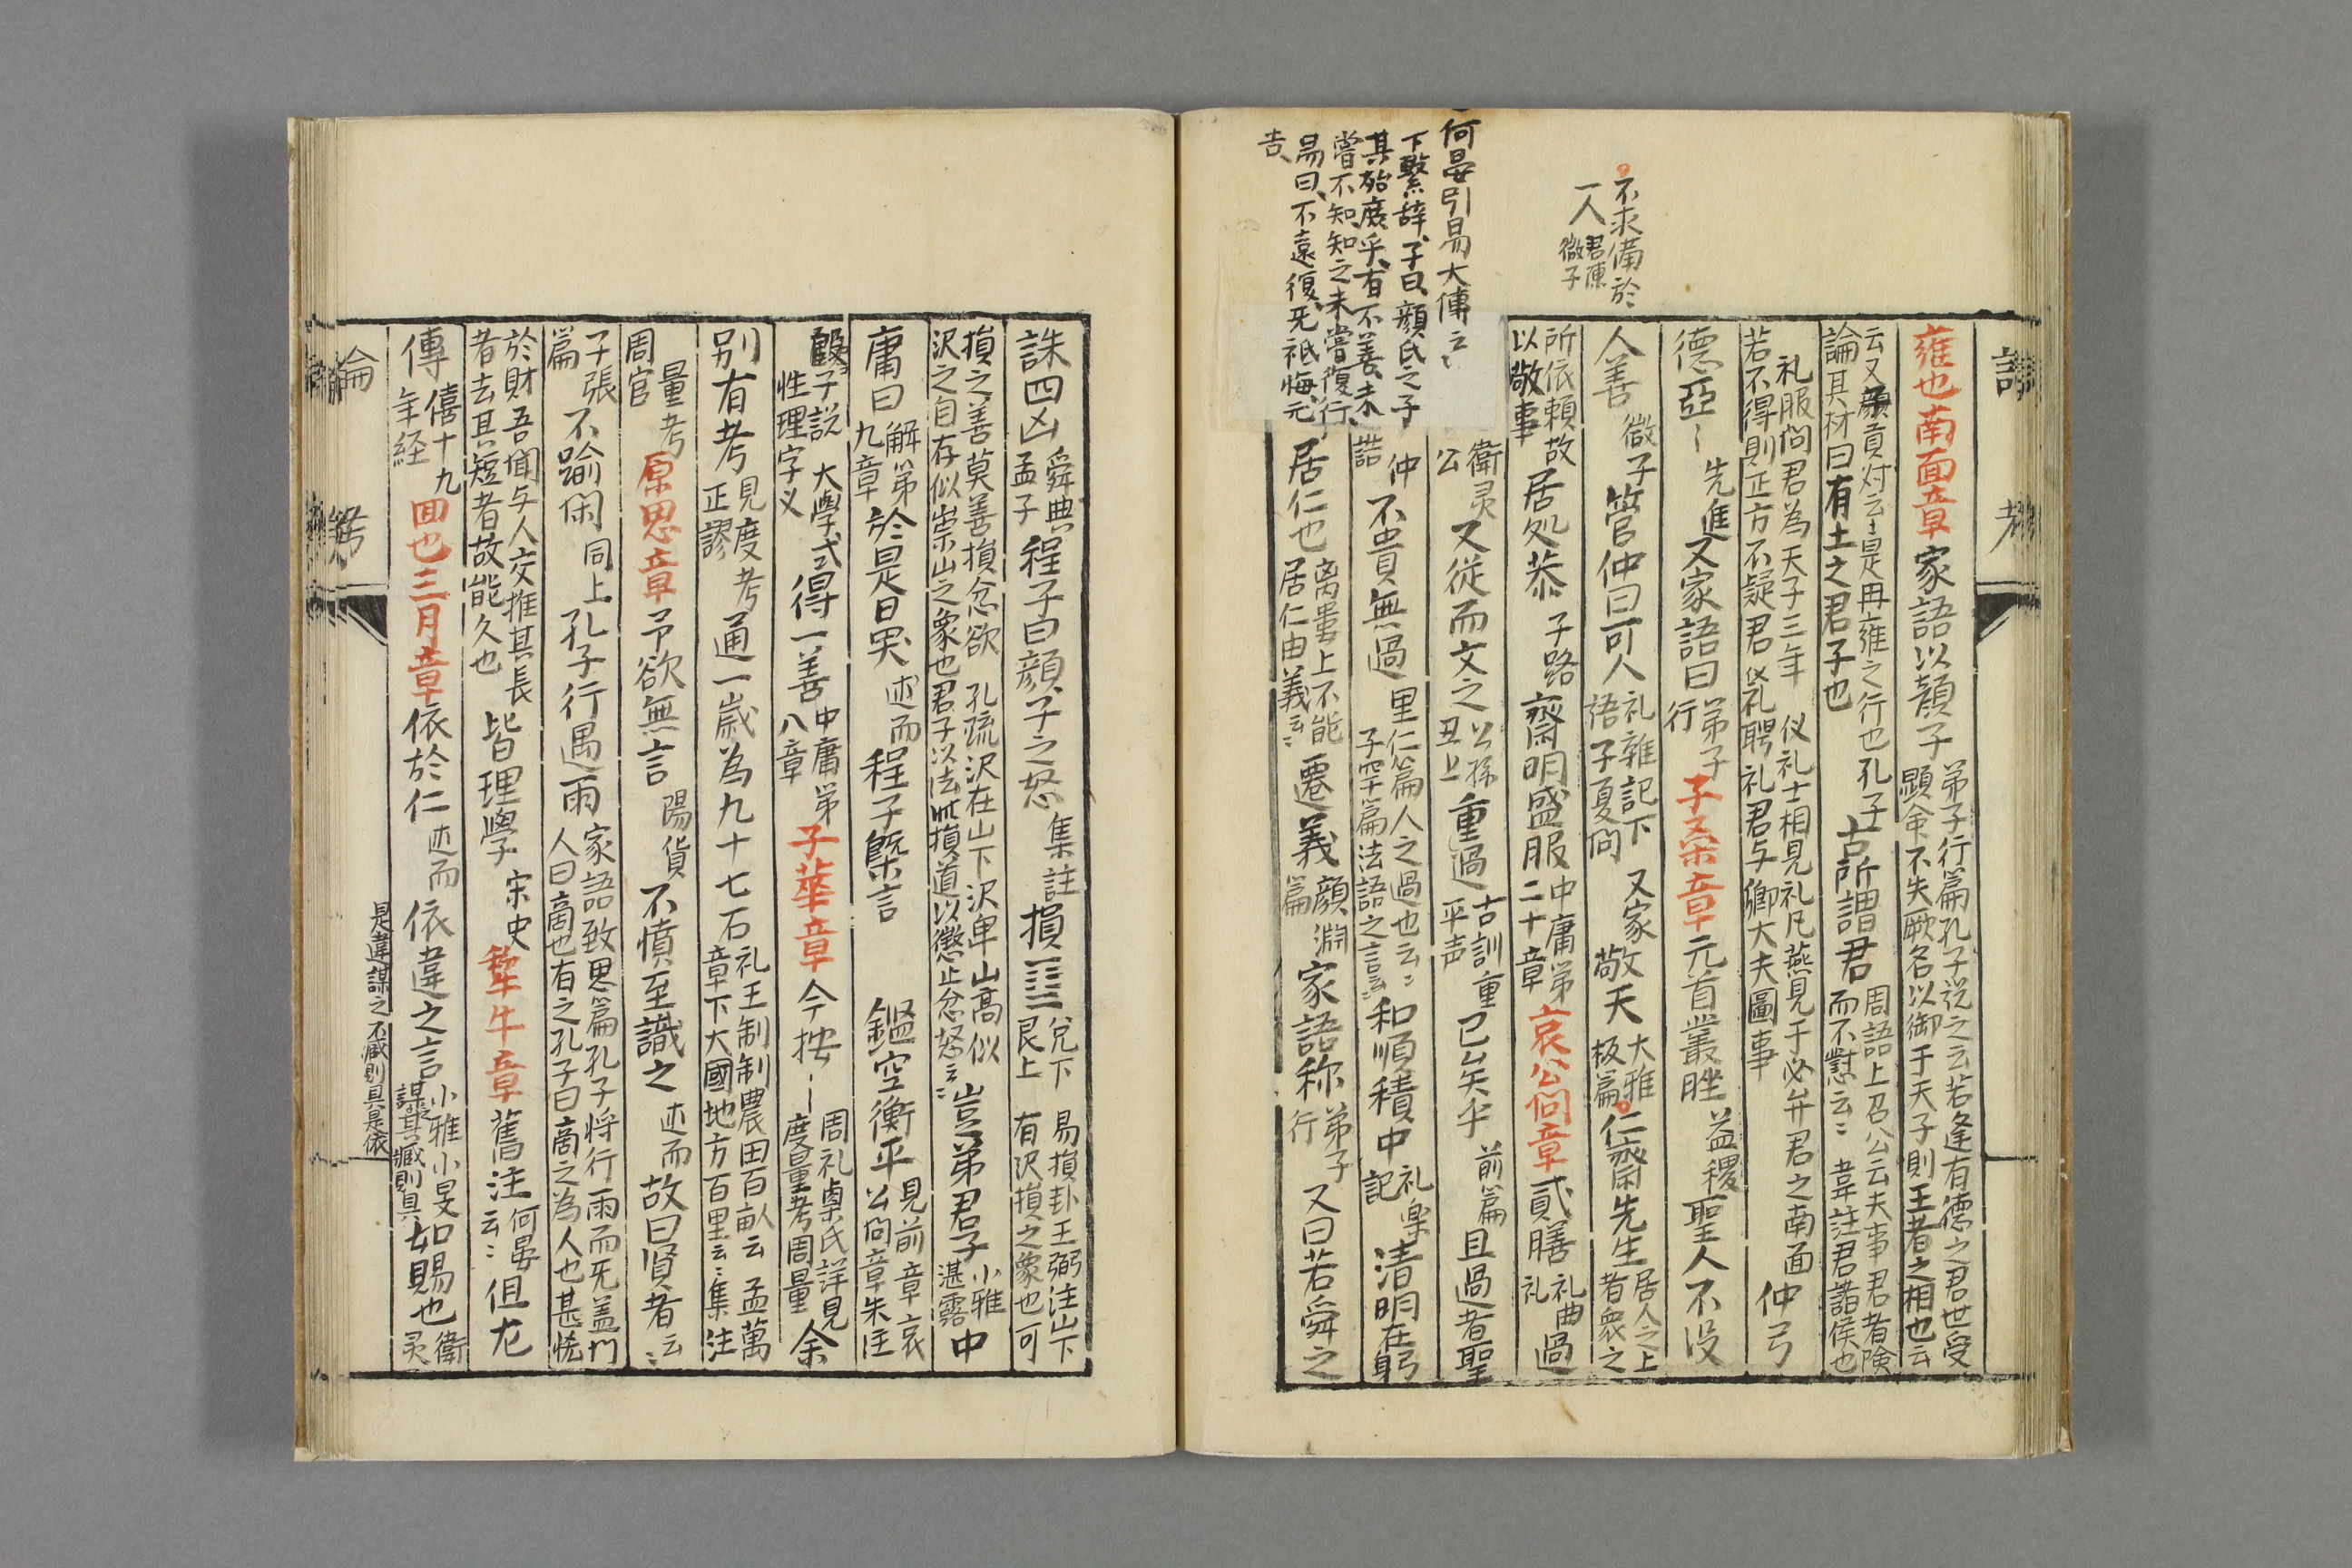 不求備於
一人 君陳
微子
何晏引易大傳云〻
下繫辞、子曰、顔氏之子
其殆庶乎、有不善未
嘗不知、知之未嘗復行、
易曰、不遠復、无祇悔、元
吉、
雍也南面章 家語以顔子 弟子行篇孔子説之云若逢有德之君世受
顯命不失厥名以御于天子則王者之相也云
云又子貢対云〻是冉雍之行也孔子
論其材曰有土之君子也 古所謂君 周語上召公云夫事君者険
而不懟云〻 韋註君諸侯也
礼服問君為天子三年 仪礼士相見礼凡燕見于君必弁君之南面
若不得則正方不疑君 仪礼聘礼君与卿大夫圖事 仲弓
德亞〻 先進 又家語曰 弟子
行 子桑章 元首叢脞 益稷 聖人不没
人善 微子 管仲曰可人 礼雜記下
語子夏問 又家 敬天 大雅
板篇 仁齋先生 居人之上
者衆之
所依頼故
以敬事 居処恭 子路 齋明盛服 中庸第
二十章 哀公問章 貳膳 礼曲
礼 過
衛灵
公 又從而文之 公孫
丑上 重過 古訓重
平声 已矣乎 前篇 且過者聖
仲
誥 不貴無過 里仁篇人之過也云〻
子罕篇法語之言云〻 和順積中 礼楽
記 清明在躬
居仁也 离婁上不能
居仁由義云〻 遷義 顔淵
篇 家語称 弟子
行 又曰若舜之
誅四凶 舜典
孟子 程子曰顔子之怒 集註 損 兌下
艮上 易損卦王弼注山下
有沢損之象也可
損之善莫善損忿欲 孔疏沢在山下沢卑山高似
沢之自存似崇山之象也君子以法此損道以懲止忿怒云〻 豈弟君子 小雅
湛露 中
庸曰 解第
九章 於是日哭 述而 程子槩言 鑑空衡平 見前章哀
公問章朱注
殷子説
性理字义 大學式 得一善 中庸第
八章 子華章 今按〻 周礼㮚氏詳見
度量考周量 余
別有考 見度考
正謬 通一歳為九十七石 礼王制制農田百畝云 孟萬
章下大國地方百里云〻集注
量考
周官 原思章 予欲無言 陽貨 不憤至識之 述而 故曰賢者云〻
子張
篇 不踰閑 同上 孔子行遇雨 家語致思篇孔子将行雨而无盖門
人曰商也有之孔子曰商之為人也甚恡
於財吾聞与人交推其長
者去其短者故能久也 皆理學 宋史 犂牛章 舊注 何晏
云〻 但尤
傳 僖十九
年経 回也三月章 依於仁 述而 依違之言 小雅小旻
謀其臧則具 如賜也 衛
灵
是違謀之不臧則具是依
論 考